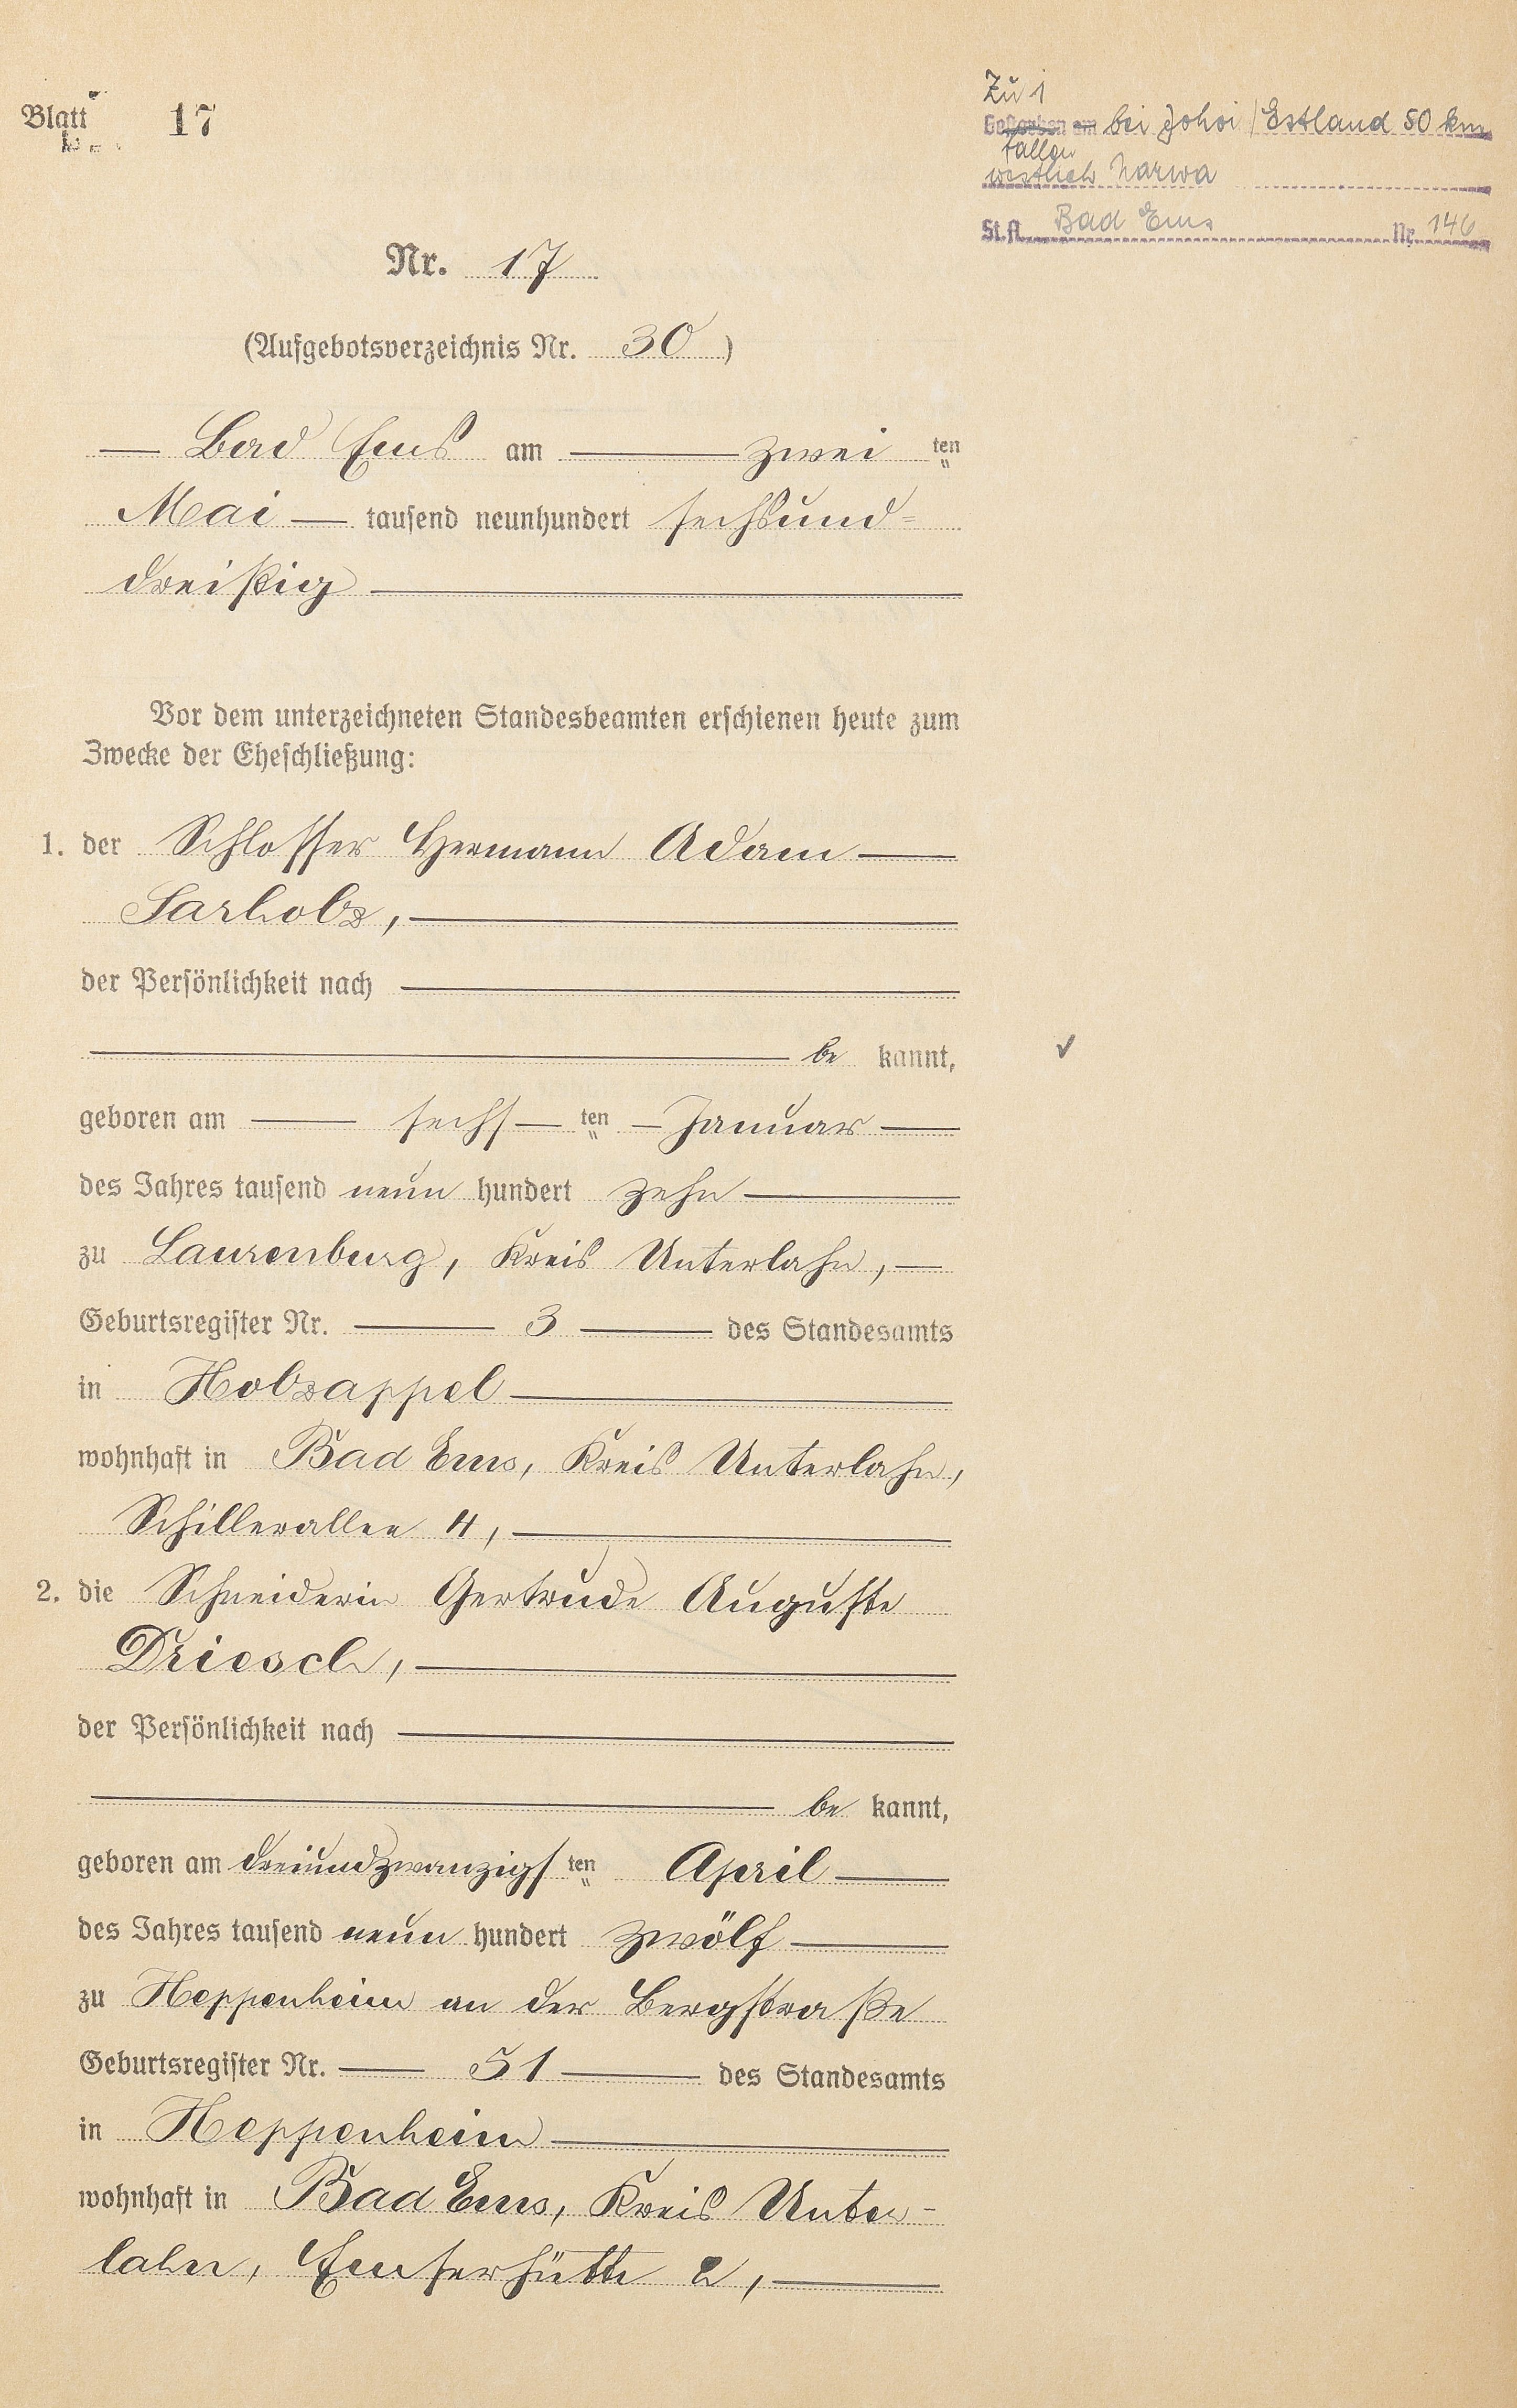 Blatt 17
Zu 1
Gestorben am bei Johvi / Estland 50 km
fallen
westlich Narwa
St.A. Bad Ems Nr. 146
Nr. 17
(Aufgebotsverzeichnis Nr. 30)
— Bad Ems am — zwei ten
Mai — tausend neunhundert sechsund=
dreißig —
Vor dem unterzeichneten Standesbeamten erschienen heute zum
Zwecke der Eheschließung:
1. der Schlosser Hermann Adam —
Sarholz, —
der Persönlichkeit nach —
— be kannt,
geboren am — sechs — ten — Januar —
des Jahres tausend neun hundert zehn —
zu Laurenburg, Kreis Unterlahn, —
Geburtsregister Nr. — 3 — des Standesamts
in Holzappel —
wohnhaft in Bad Ems, Kreis Unterlahn,
Schillerallee 4, —
2. die Schneiderin Gertrude Auguste
Driesch, —
der Persönlichkeit nach —
— be kannt,
geboren am dreiundzwanzigs ten April —
des Jahres tausend neun hundert zwölf —
zu Heppenheim an der Bergstraße
Geburtsregister Nr. — 51 — des Standesamts
in Heppenheim —
wohnhaft in Bad Ems, Kreis Unter-
lahn, Emserhütte 2, —